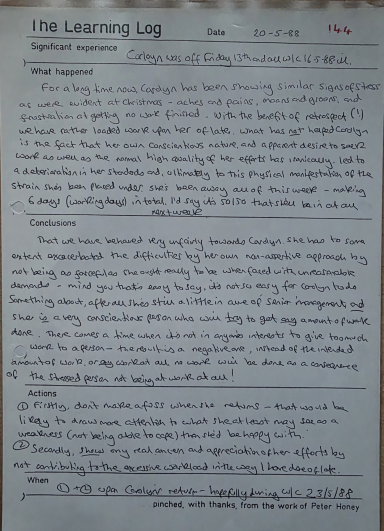 The Learning Log Date 20-5-88 144
Significant experience
Carolyn was off Friday 13th and all w/c 16-5-88
What happened
For a long time now, Carolyn has been showing similar signs of stress
as were evident at Christmas - aches and pains, moans and groans, and
frustration at getting no work finished. With the benefit of retrospect (!)
we have rather loaded work upon her of late. What has not helped Carolyn
is the fact that her own conscientious nature, and apparent desire to
work as well as the normal high quality of her efforts has ironically led to
a deterioration in her standards and, ultimately to this physical manifestation of the
strain she's been placed under. She's been away all of this week - making
6 days (working days) in total. I'd say its 50/50 that she'll be in at all
next week
Conclusions
That we have behaved very unfairly towards Carolyn. She has to some
extent exacerbated the difficulties by her own non-assertive approach by
not being as forceful as she ought really to be when faced with unreasonable
demands - mind you that's easy to say, its not so easy for Carolyn to do
something about, after all she's still a little in awe of senior management, and
she is a very conscientious person who will try to get any amount of work
done. There comes a time when its not in anyones interests to give too much
work to a person - the result is a negative one, instead of the intended
amount of work, or any work at all, no work will be done as a consequence
of the stressed person not being at work at all!
Actions
① Firstly, don't make a fuss when she returns - that would be
likely to draw more attention to what she at least may see as a
weakness (not being able to cope) than she'd be happy with.
② Secondly, show my real concern and appreciation of her efforts by
not contributing to the excessive workload in the way I have done of late.
When
① + ② upon Carolyn's return - hopefully during w/c 23/5/88
pinched, with thanks, from the work of Peter Honey